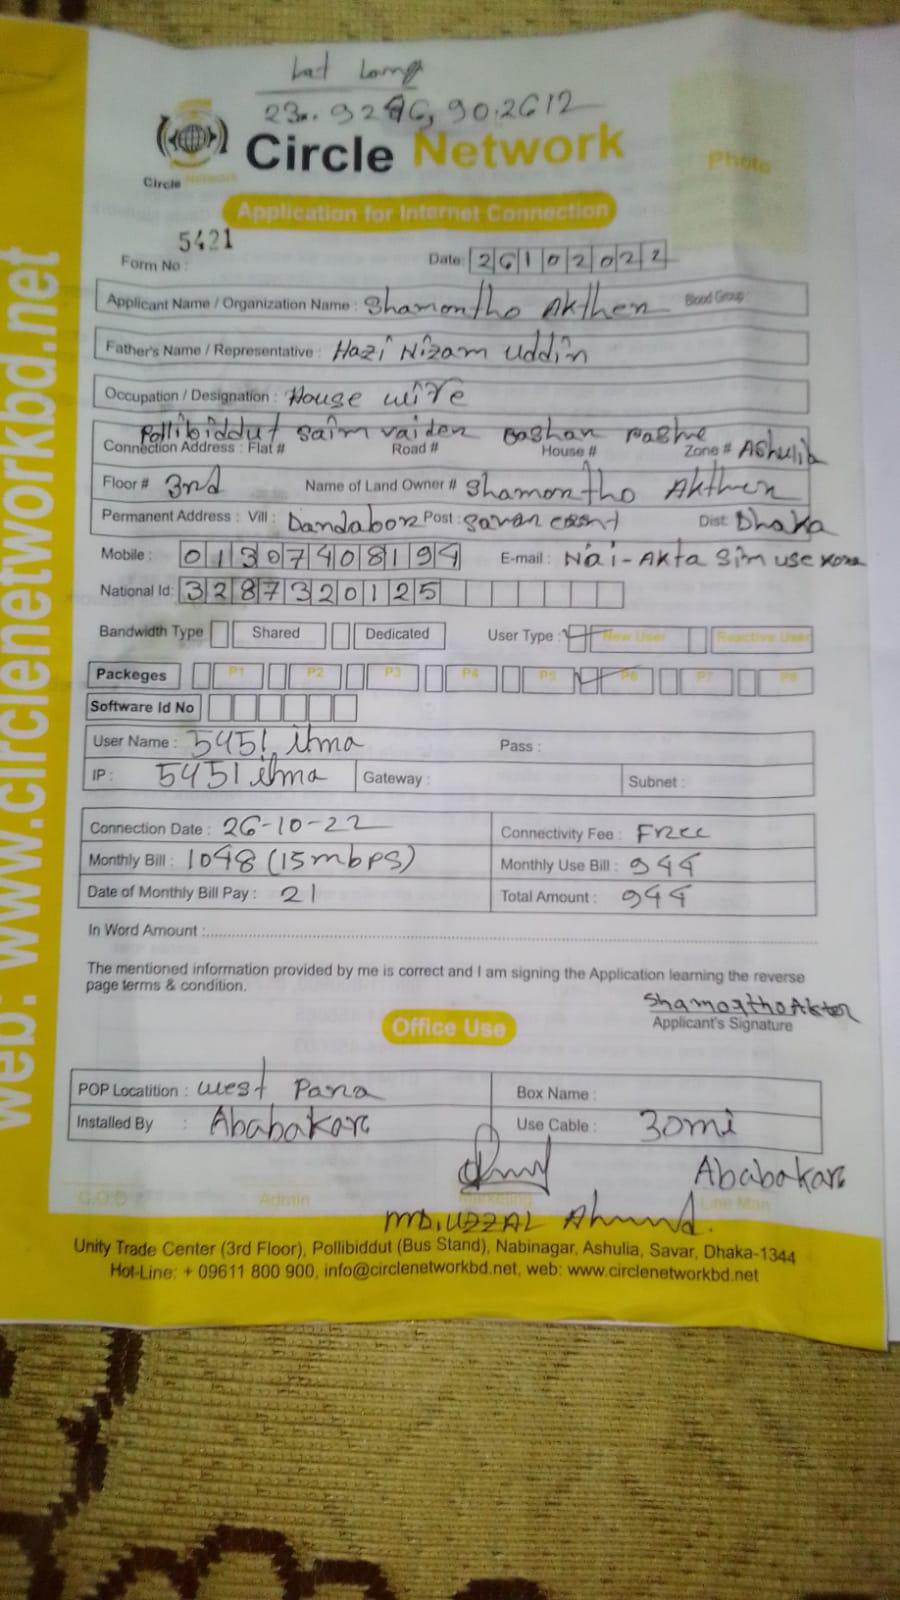 Lat Long
90.2612
Circle Network
Circle Network
Photo
Application for Internet Connection
Form No : 5421
Date: 26102022
Applicant Name / Organization Name : Shamontho Akther Blood Group
Father's Name / Representative : Hazi Nizam Uddin
Occupation / Designation : House wife
Pollibiddut Saim
Connection Address : Flat # Road # House # Zone # Ashulia
Floor # 3rd Name of Land Owner # Shamontho Akther
Permanent Address : Vill : Dandabor Post : Savar Dist: Dhaka
Mobile : 01307408194 E-mail : Nai-Akta Sim use kora
National Id: 3287320125
Bandwidth Type Shared Dedicated User Type : New User Reactive User
Packeges P1 P2 P3 P4 P5 P6 P7 P8
Software Id No
User Name : 5451.ilma Pass :
IP : 5451 ilma Gateway : Subnet :
Connection Date : 26-10-22 Connectivity Fee : Free
Monthly Bill : 1048 (15mbps) Monthly Use Bill : 944
Date of Monthly Bill Pay : 21 Total Amount : 944
In Word Amount :
The mentioned information provided by me is correct and I am signing the Application learning the reverse
page terms & condition.
Applicant's Signature
Office Use
POP Locatition : West Para Box Name :
Installed By : Ababakar Use Cable : 30mi
Ababakar
C.O.O Admin Marketing Line Man
MD. UZZAL Ahmed.
Unity Trade Center (3rd Floor), Pollibiddut (Bus Stand), Nabinagar, Ashulia, Savar, Dhaka-1344
Hot-Line: + 09611 800 900, info@circlenetworkbd.net, web: www.circlenetworkbd.net
web: www.circlenetworkbd.net